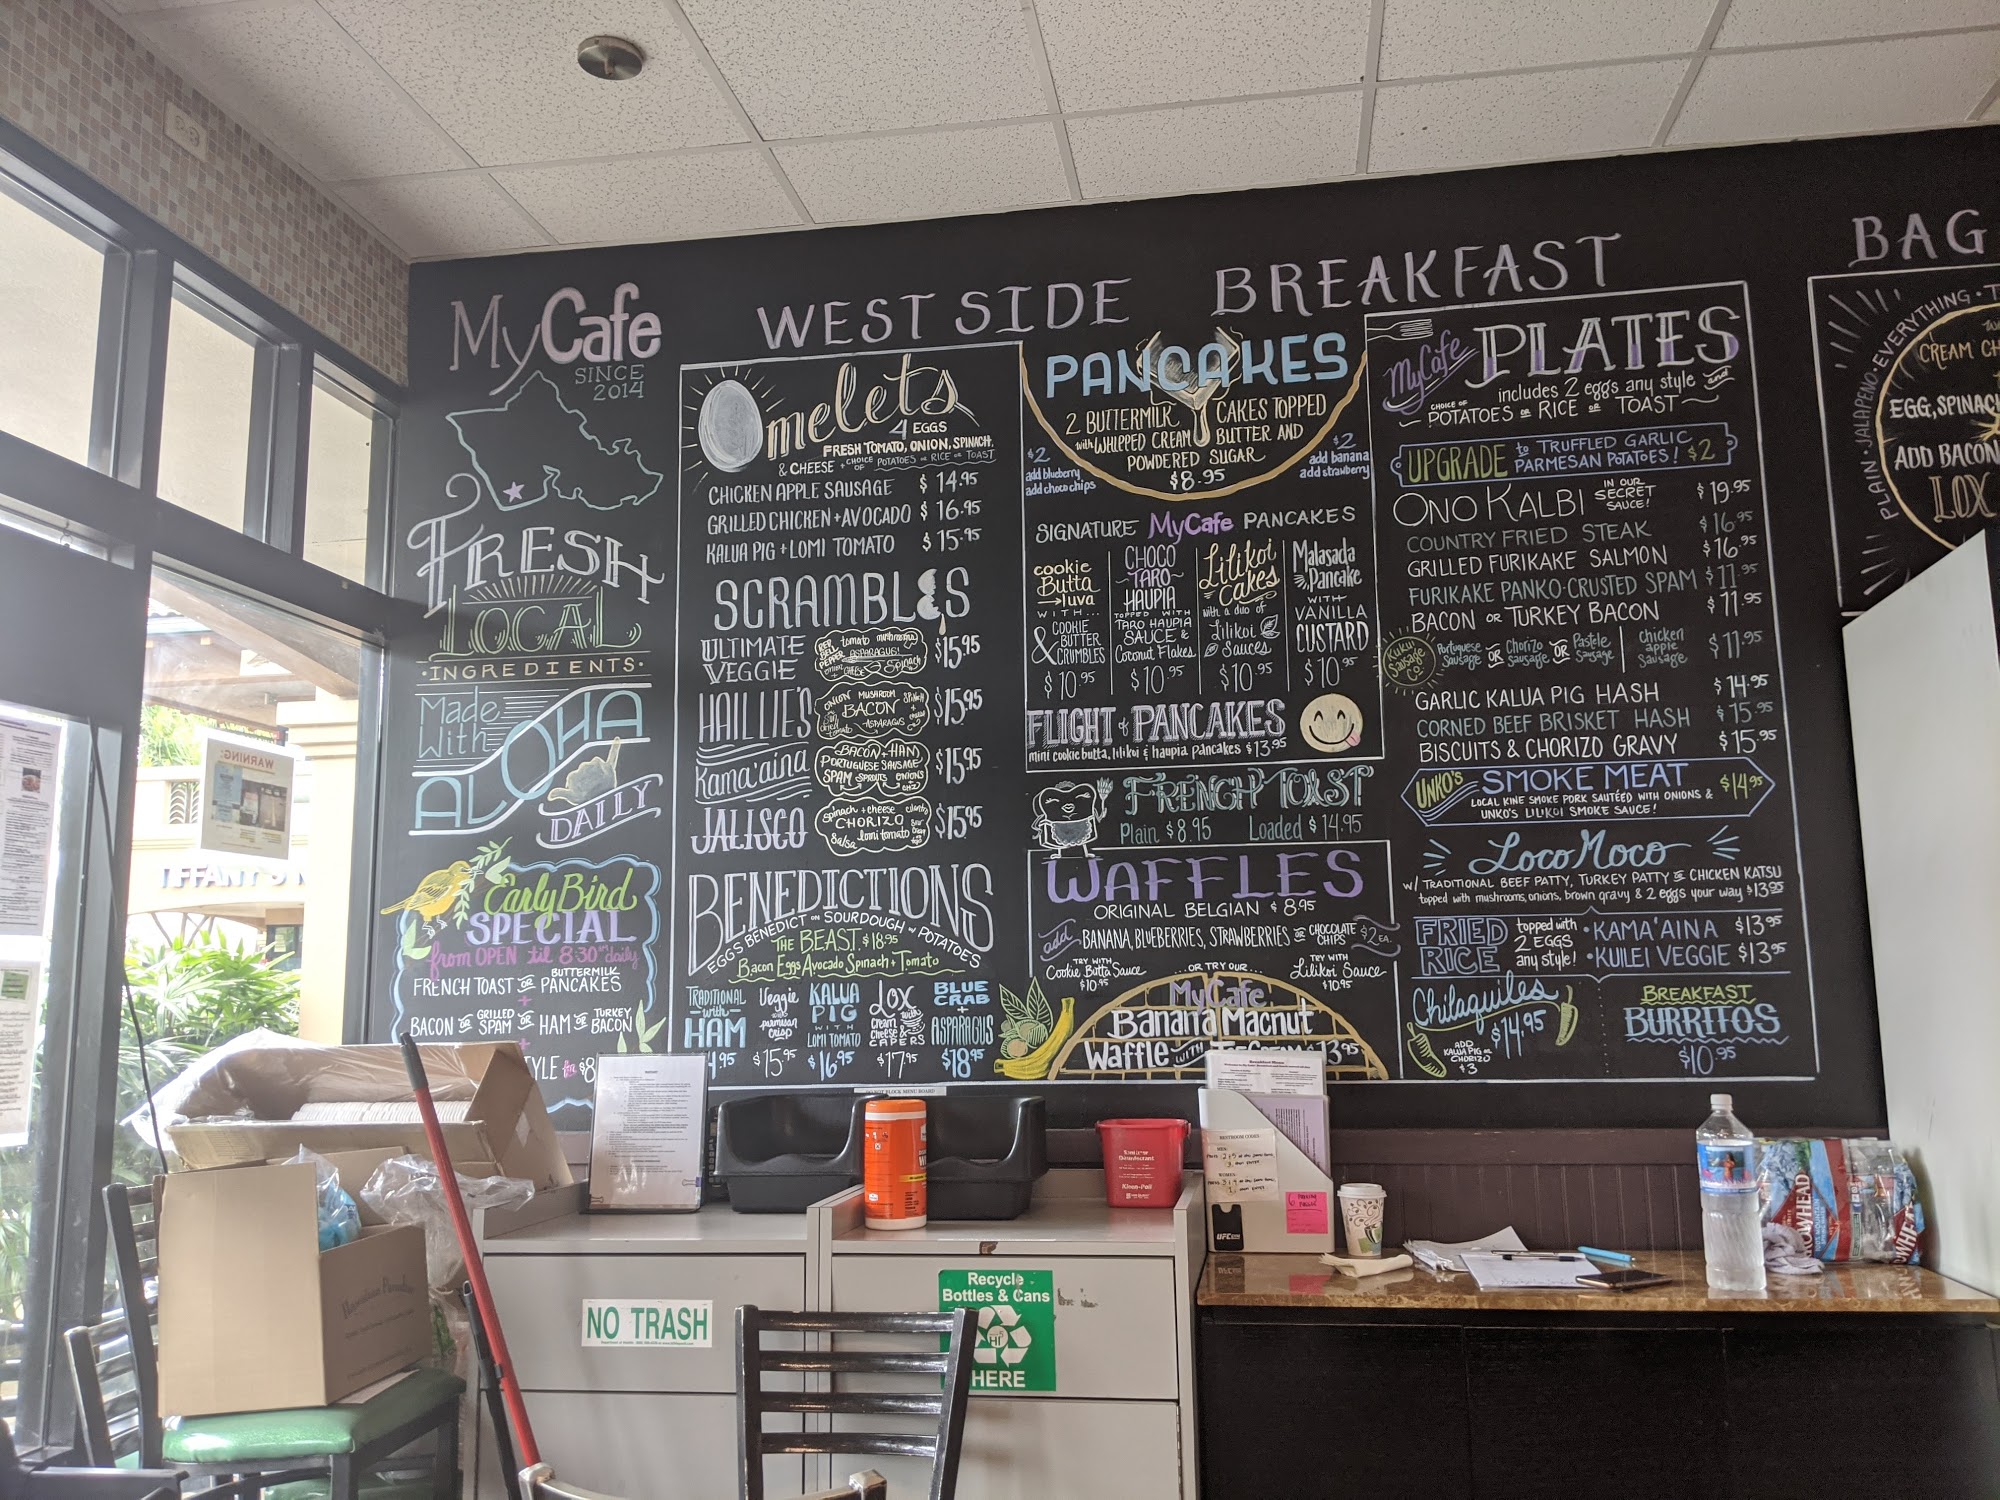 MyCafe
SINCE
2014
FRESH
LOCAL
·INGREDIENTS·
Made
With
ALOHA
DAILY
Early Bird
SPECIAL
from OPEN 'til 8:30am daily
FRENCH TOAST OR BUTTERMILK PANCAKES
+
BACON OR GRILLED SPAM OR HAM OR TURKEY BACON
+
STYLE for $8
WEST SIDE BREAKFAST
Omelets
4 EGGS
FRESH TOMATO, ONION, SPINACH,
& CHEESE + CHOICE OF POTATOES OR RICE OR TOAST
CHICKEN APPLE SAUSAGE $14.95
GRILLED CHICKEN + AVOCADO $16.95
KALUA PIG + LOMI TOMATO $15.95
SCRAMBLES
ULTIMATE VEGGIE $15.95
RED BELL PEPPER tomato mushrooms ASPARAGUS! onion CHEESE Spinach
HAILLIE'S $15.95
ONION MUSHROOM SPINACH BACON ASPARAGUS
Kama'aina $15.95
BACON + HAM
PORTUGUESE SAUSAGE
SPAM SPROUTS ONIONS
JALISCO $15.95
spinach + cheese cilantro
CHORIZO
Salsa lomi tomato
BENEDICTIONS
EGGS BENEDICT ON SOURDOUGH w/ POTATOES
THE BEAST $18.95
Bacon Eggs Avocado Spinach + Tomato
TRADITIONAL with HAM 4.95
Veggie with parmesan crisp $15.95
KALUA PIG WITH LOMI TOMATO $16.95
LOX with cream cheese & CAPERS $17.95
BLUE CRAB + ASPARAGUS $18.95
PANCAKES
2 BUTTERMILK CAKES TOPPED
with WHIPPED CREAM BUTTER AND
POWDERED SUGAR
$8.95
$2
add blueberry
add choco chips
$2
add banana
add strawberry
SIGNATURE MyCafe PANCAKES
cookie Butta luva WITH... COOKIE BUTTER & CRUMBLES $10.95
CHOCO TARO HAUPIA TOPPED WITH TARO HAUPIA SAUCE & Coconut Flakes $10.95
Lilikoi Cakes with a duo of Lilikoi Sauces $10.95
Malasada Pancake WITH VANILLA CUSTARD $10.95
FLIGHT of PANCAKES
mini cookie butta, lilikoi & haupia pancakes $13.95
FRENCH TOAST
Plain $8.95 Loaded $14.95
WAFFLES
ORIGINAL BELGIAN $8.95
add BANANA, BLUEBERRIES, STRAWBERRIES OR CHOCOLATE CHIPS $2 EA.
TRY WITH Cookie Butta Sauce $10.95
...OR TRY OUR...
TRY WITH Lilikoi Sauce $10.95
MyCafe
Banana Macnut
Waffle WITH ICE CREAM $13.95
MyCafe PLATES
includes 2 eggs any style and
CHOICE OF POTATOES OR RICE OR TOAST
UPGRADE to TRUFFLED GARLIC PARMESAN POTATOES! $2
ONO KALBI IN OUR SECRET SAUCE! $19.95
COUNTRY FRIED STEAK $16.95
GRILLED FURIKAKE SALMON $16.95
FURIKAKE PANKO-CRUSTED SPAM $11.95
BACON OR TURKEY BACON $11.95
Kukui Sausage Co. Portuguese Sausage OR Chorizo Sausage OR Pastele Sausage | Chicken apple sausage $11.95
GARLIC KALUA PIG HASH $14.95
CORNED BEEF BRISKET HASH $15.95
BISCUITS & CHORIZO GRAVY $15.95
UNKO'S SMOKE MEAT $14.95
LOCAL KINE SMOKE PORK SAUTÉED WITH ONIONS &
UNKO'S LILIKOI SMOKE SAUCE!
Loco Moco
W/ TRADITIONAL BEEF PATTY, TURKEY PATTY OR CHICKEN KATSU
topped with mushrooms, onions, brown gravy & 2 eggs your way $13.95
FRIED RICE topped with 2 EGGS any style!
·KAMA'AINA $13.95
·KUILEI VEGGIE $13.95
Chilaquiles
$14.95
ADD KALUA PIG OR CHORIZO $3
BREAKFAST
BURRITOS
$10.95
BAG
PLAIN · JALAPEÑO · EVERYTHING · T
CREAM CH
EGG, SPINACH
ADD BACON
LOX
WARNING:
IFFANY'S N
DO NOT BLOCK MENU BOARD
NO TRASH
Recycle
Bottles & Cans
HI 5
HERE
RESTROOM CODES:
MEN:
WOMEN:
UFC GYM
Kleen-Pail
ARROWHEAD